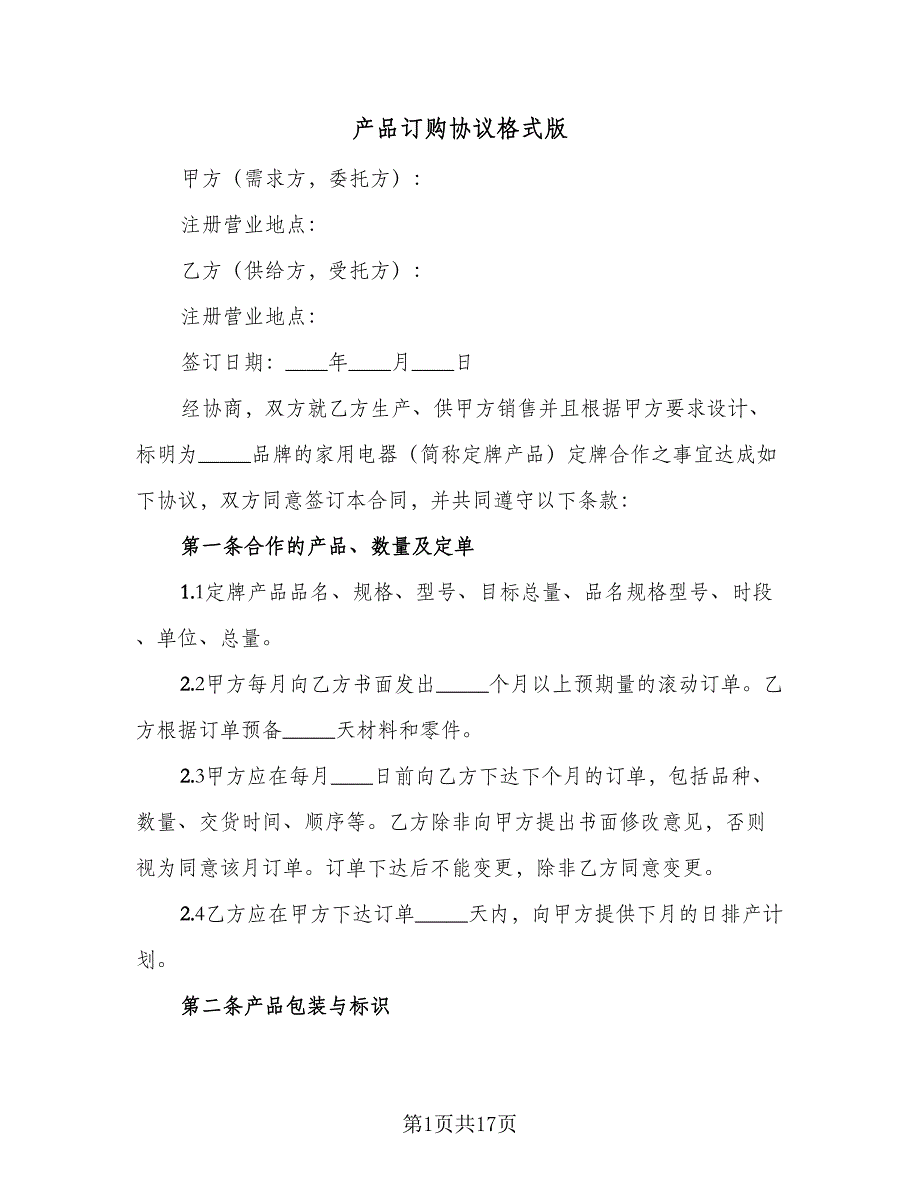 产品订购协议格式版
甲方（需求方，委托方）：
注册营业地点：
乙方（供给方，受托方）：
注册营业地点：
签订日期：____年____月____日
经协商，双方就乙方生产、供甲方销售并且根据甲方要求设计、
标明为_____品牌的家用电器（简称定牌产品）定牌合作之事宜达成如
下协议，双方同意签订本合同，并共同遵守以下条款：
第一条合作的产品、数量及定单
1.1定牌产品品名、规格、型号、目标总量、品名规格型号、时段
、单位、总量。
2.2甲方每月向乙方书面发出_____个月以上预期量的滚动订单。乙
方根据订单预备_____天材料和零件。
2.3甲方应在每月____日前向乙方下达下个月的订单，包括品种、
数量、交货时间、顺序等。乙方除非向甲方提出书面修改意见，否则
视为同意该月订单。订单下达后不能变更，除非乙方同意变更。
2.4乙方应在甲方下达订单_____天内，向甲方提供下月的日排产计
划。
第二条产品包装与标识
第1页共17页